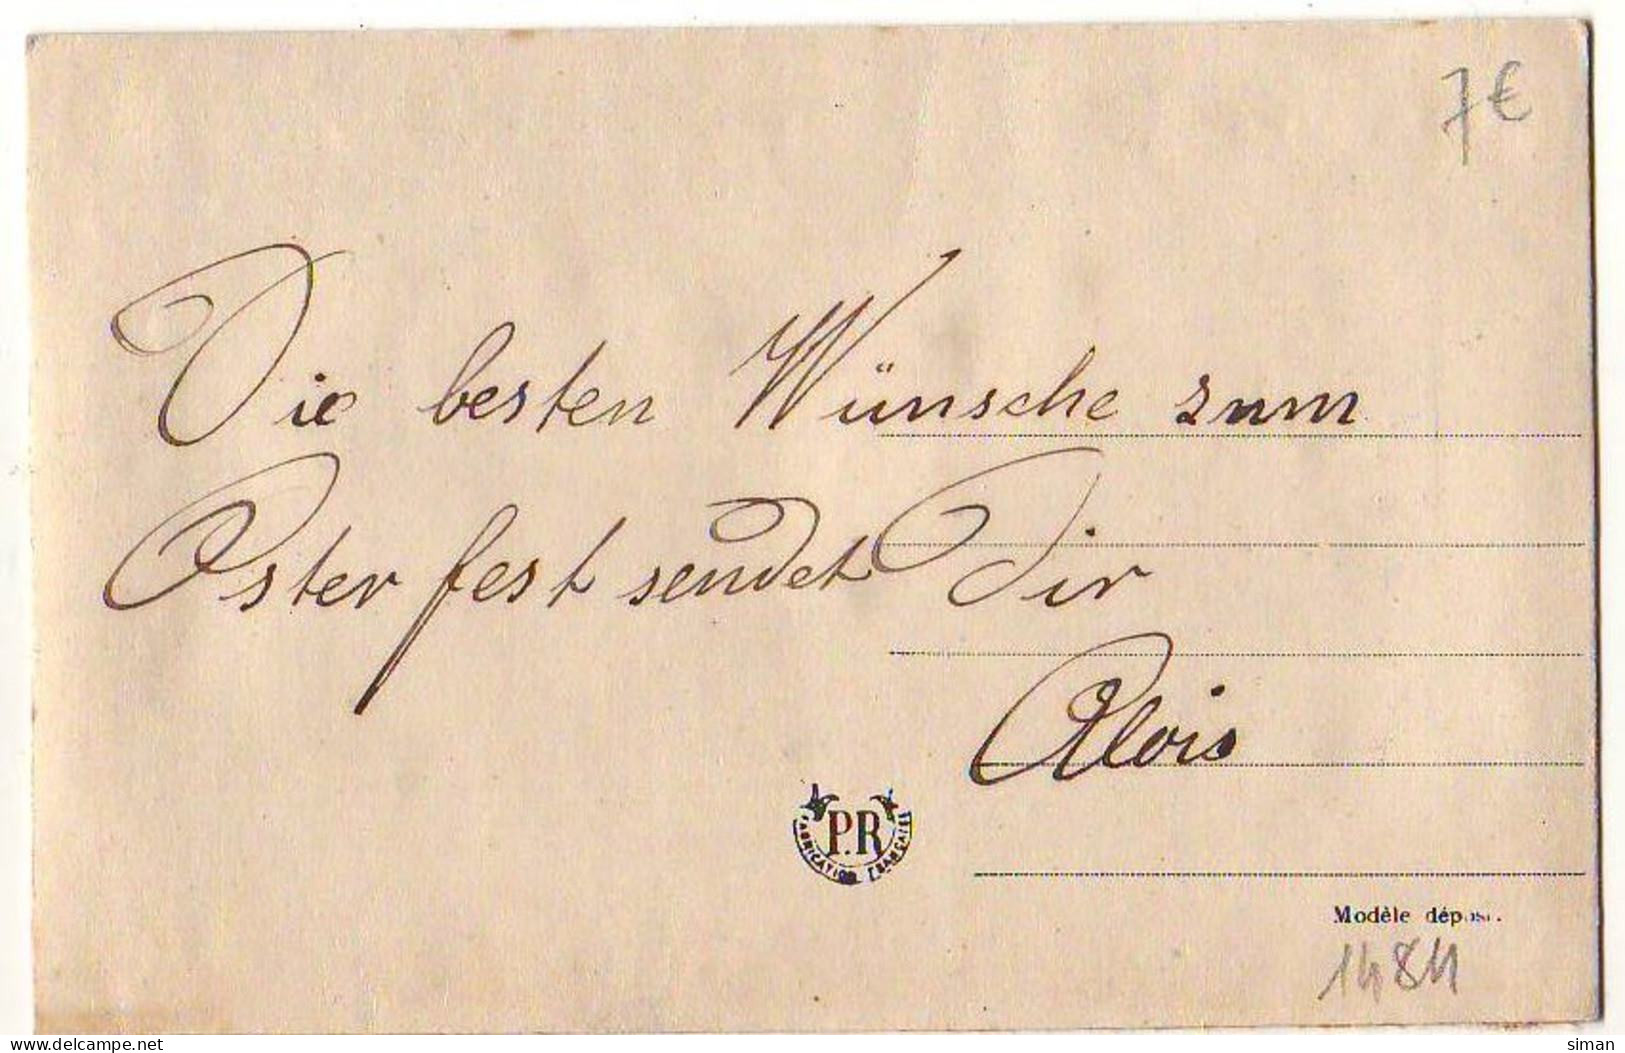 7€
Die besten Wünsche zum
Osterfest sendet Dir
Alois
P.R
FABRICATION FRANÇAISE
Modèle déposé.
1484
delcampe.net
siman